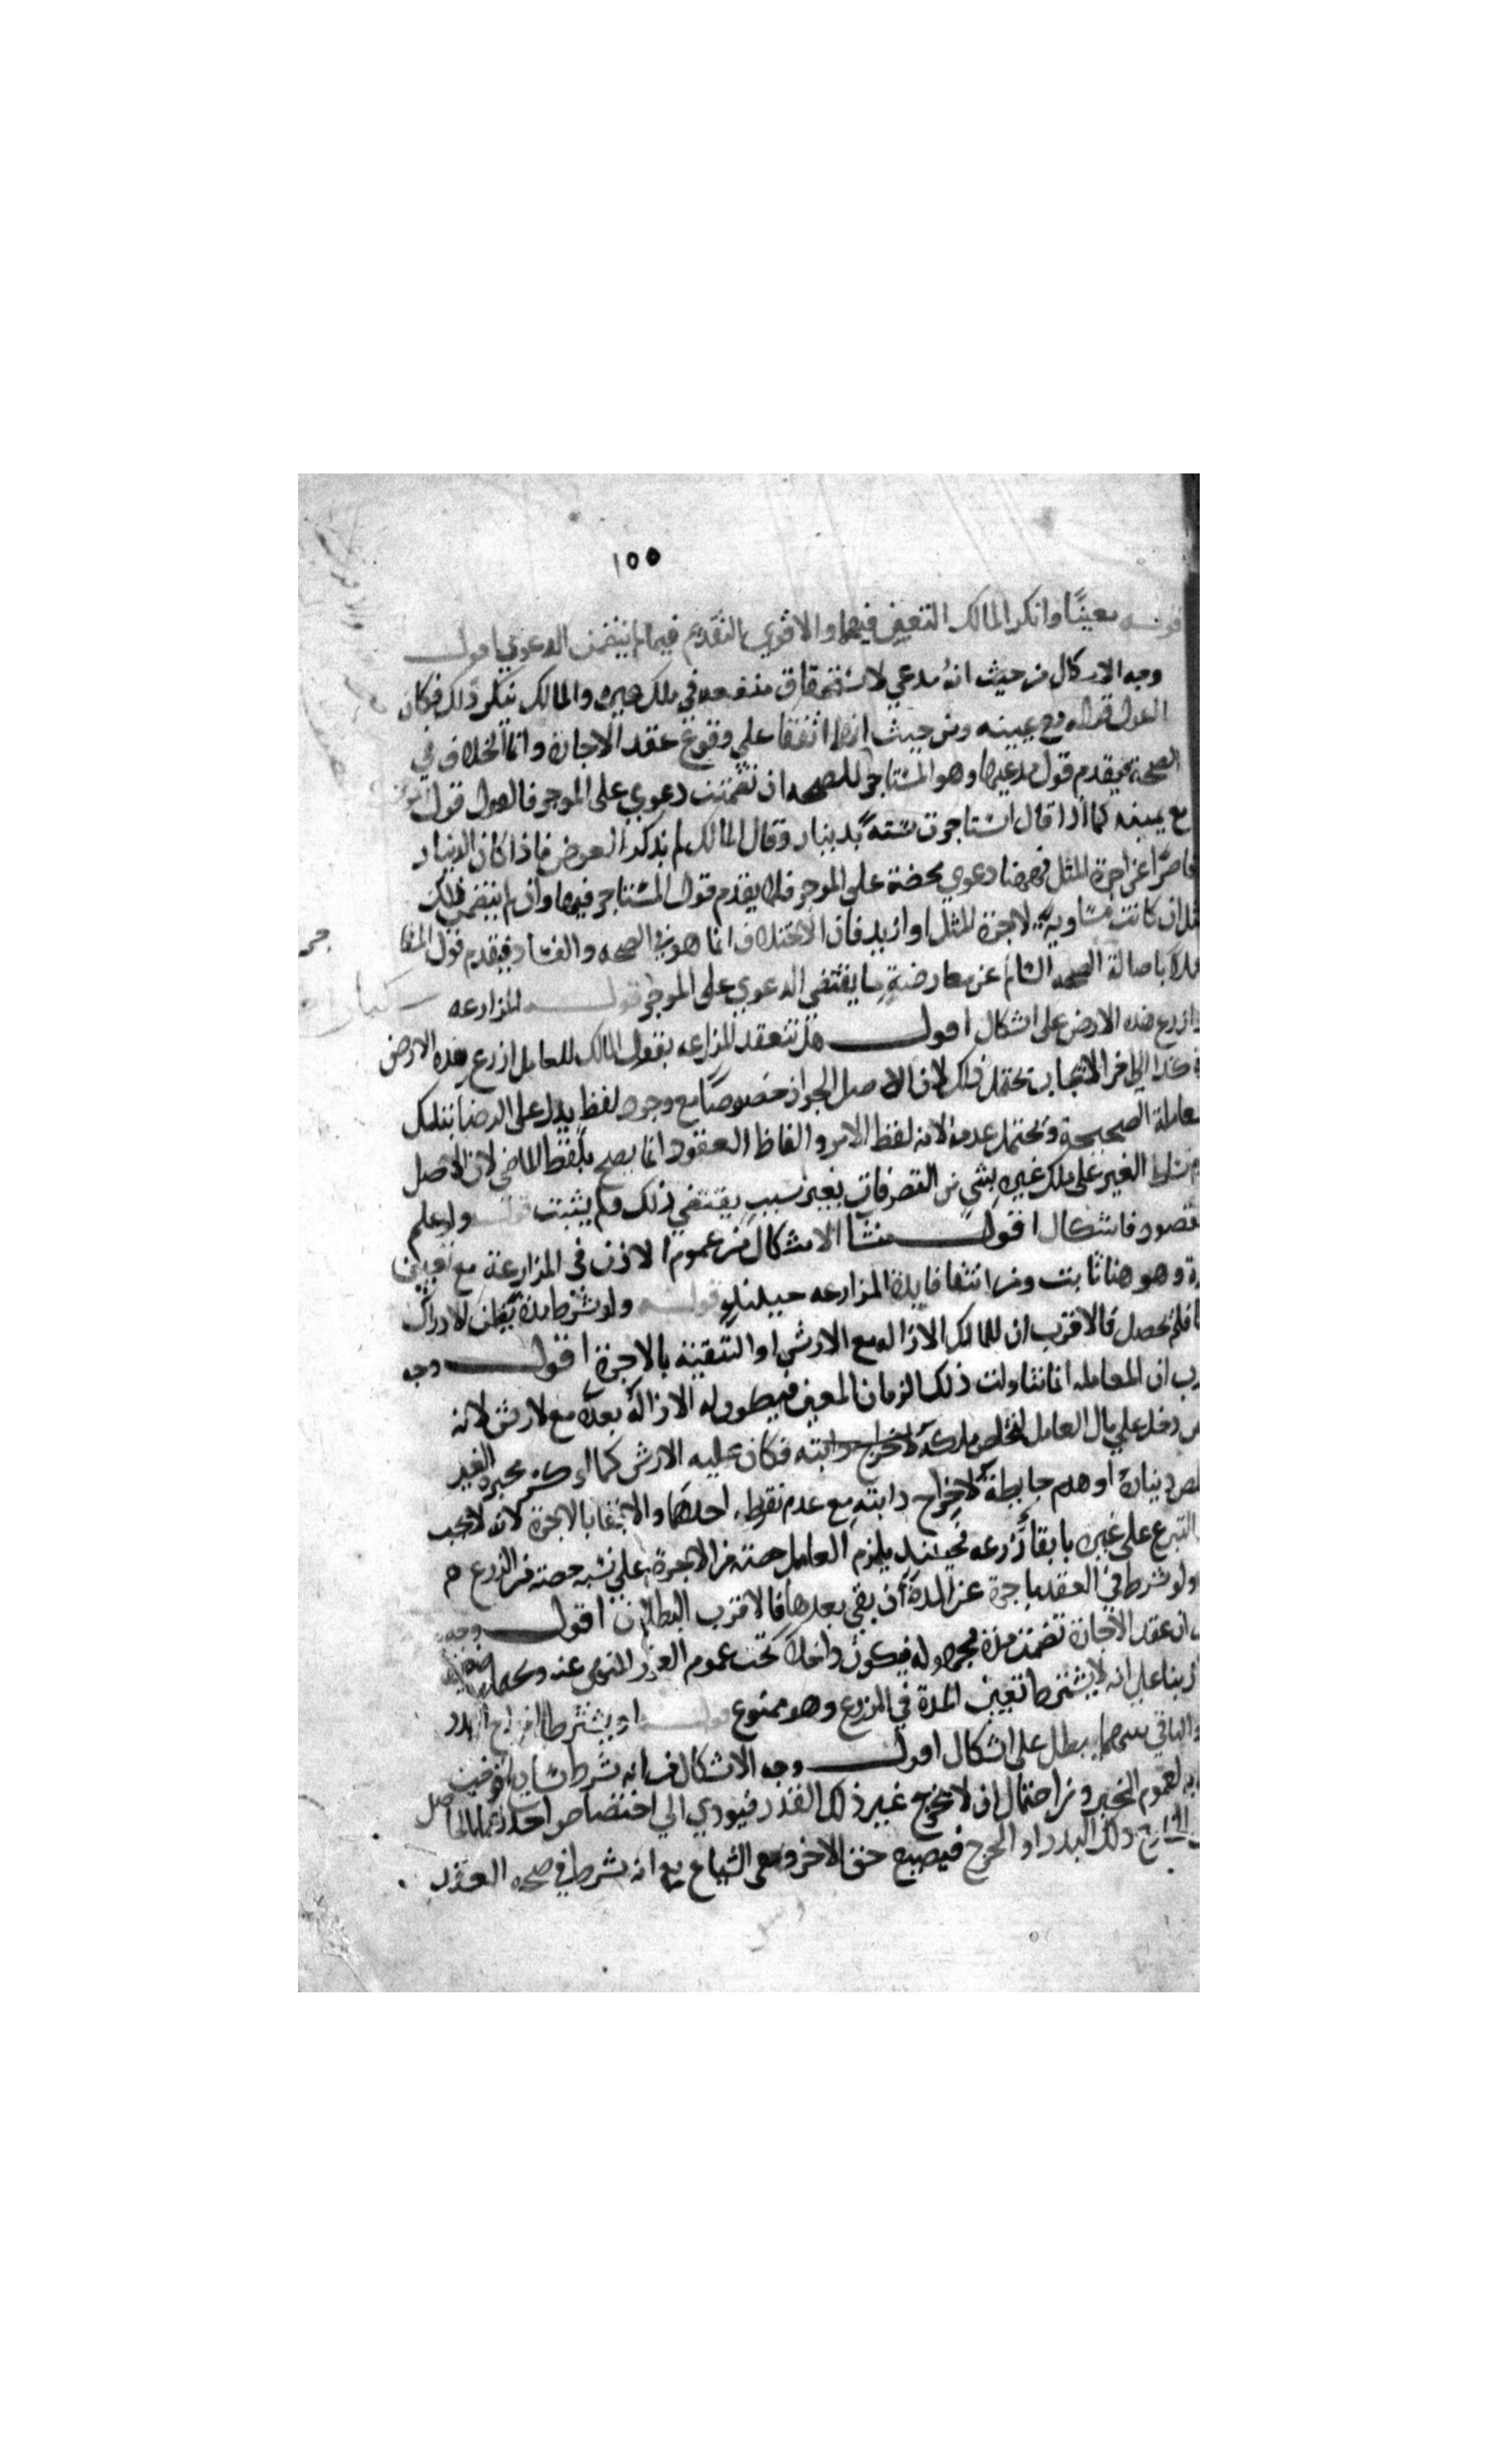 ١٥٥
قوله معينًا وانكر المالك التعيين فيهما والاقوى التقديم فيما لم يتضمن الدعوي اقول
وجه الاشكال من حيث انه مدعي لاستحقاق منفعه في ملك غيره والمالك ينكر ذلك فكان
القول قوله مع يمينه ومن حيث انهما اتفقا على وقوع عقد الاجارة وانما الخلاف في
الصحة فيقدم قول مدعيها وهو المستاجر للصحه ان تضمنت دعوي على الموجر فالقول قول
مع يمينه كما اذا قال استاجرت سنة بدينار وقال المالك لم نذكر العوض فاذا كان الدينار
قاصرًا عن اجرة المثل فههنا دعوي محضة على الموجر فلا يقدم قول المستاجر فيها وان لم يتضمن ذلك
مثل ان كانت مساوية لاجرة المثل او ازيد فان الاختلاف انما هو في الصحه والفساد فيقدم قول
عملا باصالة الصحه السالم عن معارضة ما يقتضي الدعوي على الموجر قوله المزارعه
ازرع هذه الارض على اشكال اقول هل تنعقد المزارعه بقول المالك للعامل ازرع هذه الارض
كذا الى اخر الايجاب يحتمل ذلك لان الاصل الجواز خصوصًا مع وجود لفظ يدل على الرضا بتلك
المعاملة الصحيحة ويحتمل عدمه لانه لفظ الامر والفاظ العقود انما يصح بلفظ الماضي لان الاصل
تسلط الغير على ملك غيره بشي من التصرفات بغير سبب يقتضي ذلك ولم يثبت قوله ولو علم
المقصود فاشكال اقول منشا الاشكال من عموم الاذن في المزارعة مع تعيين
وهو هنا ثابت ومن انتفا فايدة المزارعه حينئذٍ قوله ولو شرط مدة يظن الادراك
فلم يحصل فالاقرب ان للمالك الازاله مع الارش او التبقية بالاجرة اقول وجه
القرب ان المعامله انما تناولت ذلك الزمان المعين فيكون له الازالة بعده مع الارش لانه
دخل على مال العامل لتخليص ملكه فكان عليه الارش كما لو كسر محبرة الغير
دينارة او هدم حايطه لاخراج دابته مع عدم تفريط احدهما والابقا بالاجرة لانه لا يجب
التبرع على غيره بابقا زرعه فحينئذ يلزم العامل حصته من الاجرة على نسبه حصته من الزرع
ولو شرط في العقد باجرة عن المدة ان بقي بعدها فالاقرب البطلان اقول وجه
ان عقد الاجارة تضمنت مدة مجهوله فيكون داخلا تحت عموم الغرر المنهي عنه
بنا على انه لا يشترط تعيين المدة في المزارع وهو ممنوع قوله او يشترط اخراج البذر
والباقي بينهما بطل على اشكال اقول وجه الاشكال من انه شرط سايغ
لعموم الخبر ومن احتمال ان لا يخرج غير ذلك القدر فيودي الى اختصاص احدهما بالحاصل
ذلك البذر او الخرج فيضيع حق الاخر وهي الشياع مع انه شرط في صحه العقد